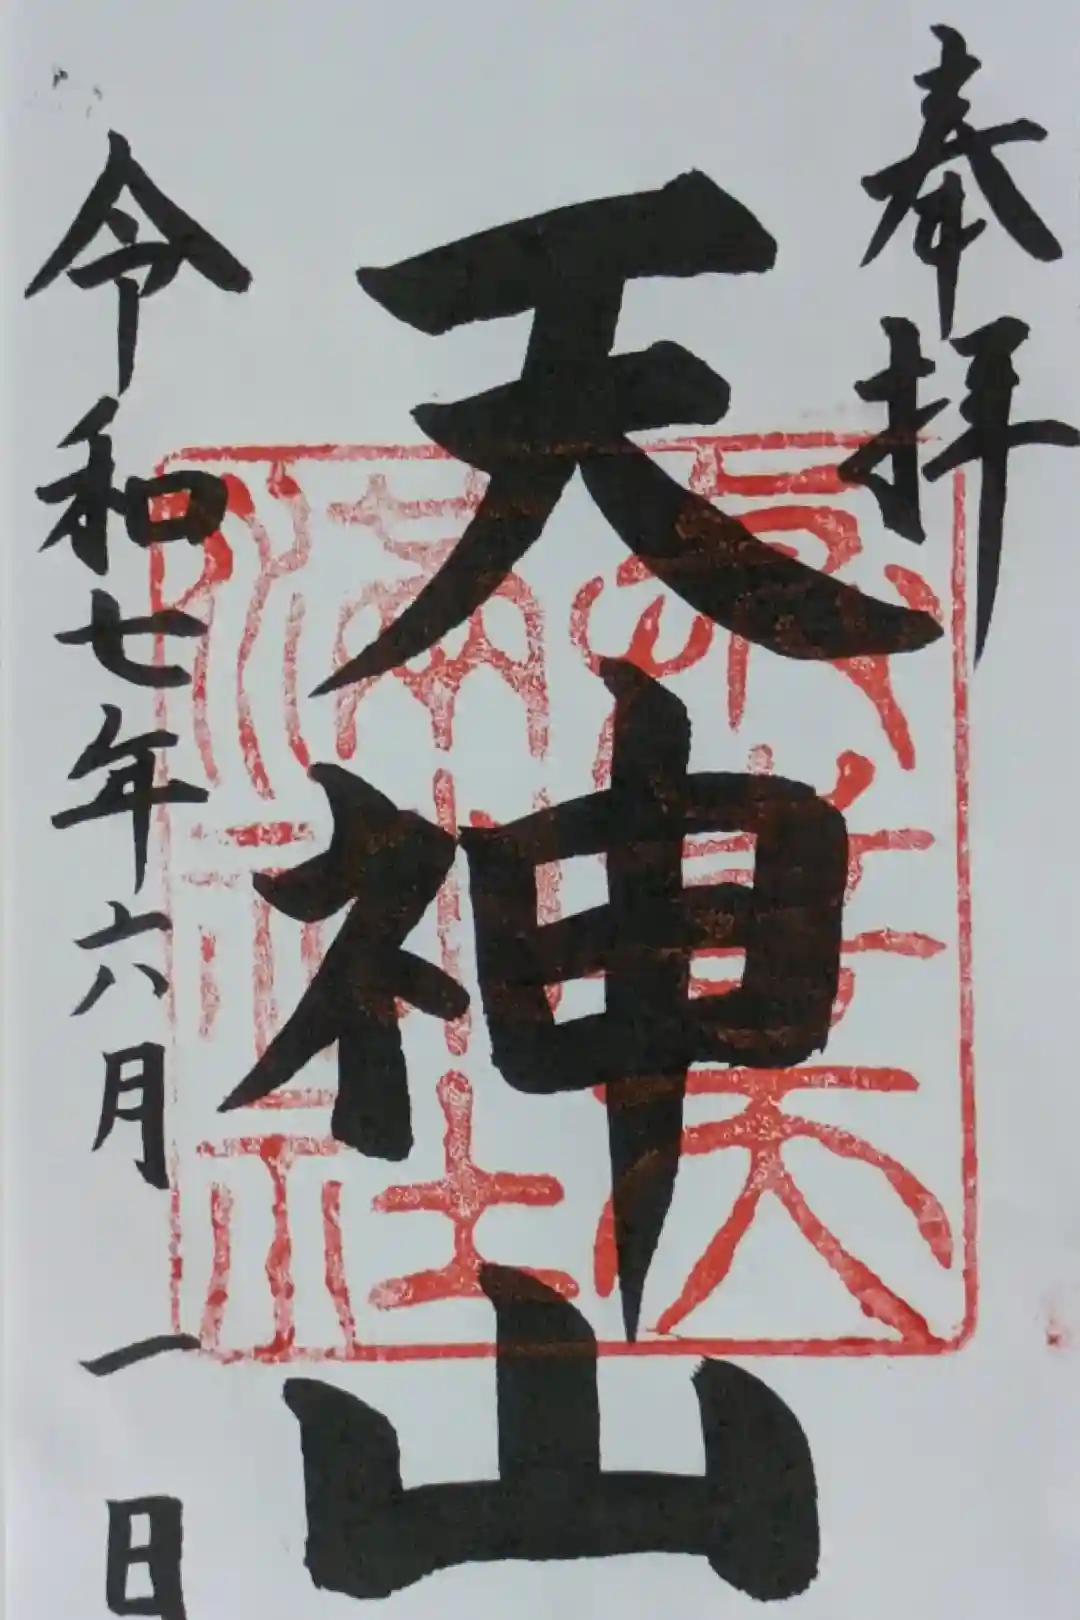 奉拝
天神山
令和七年六月一日